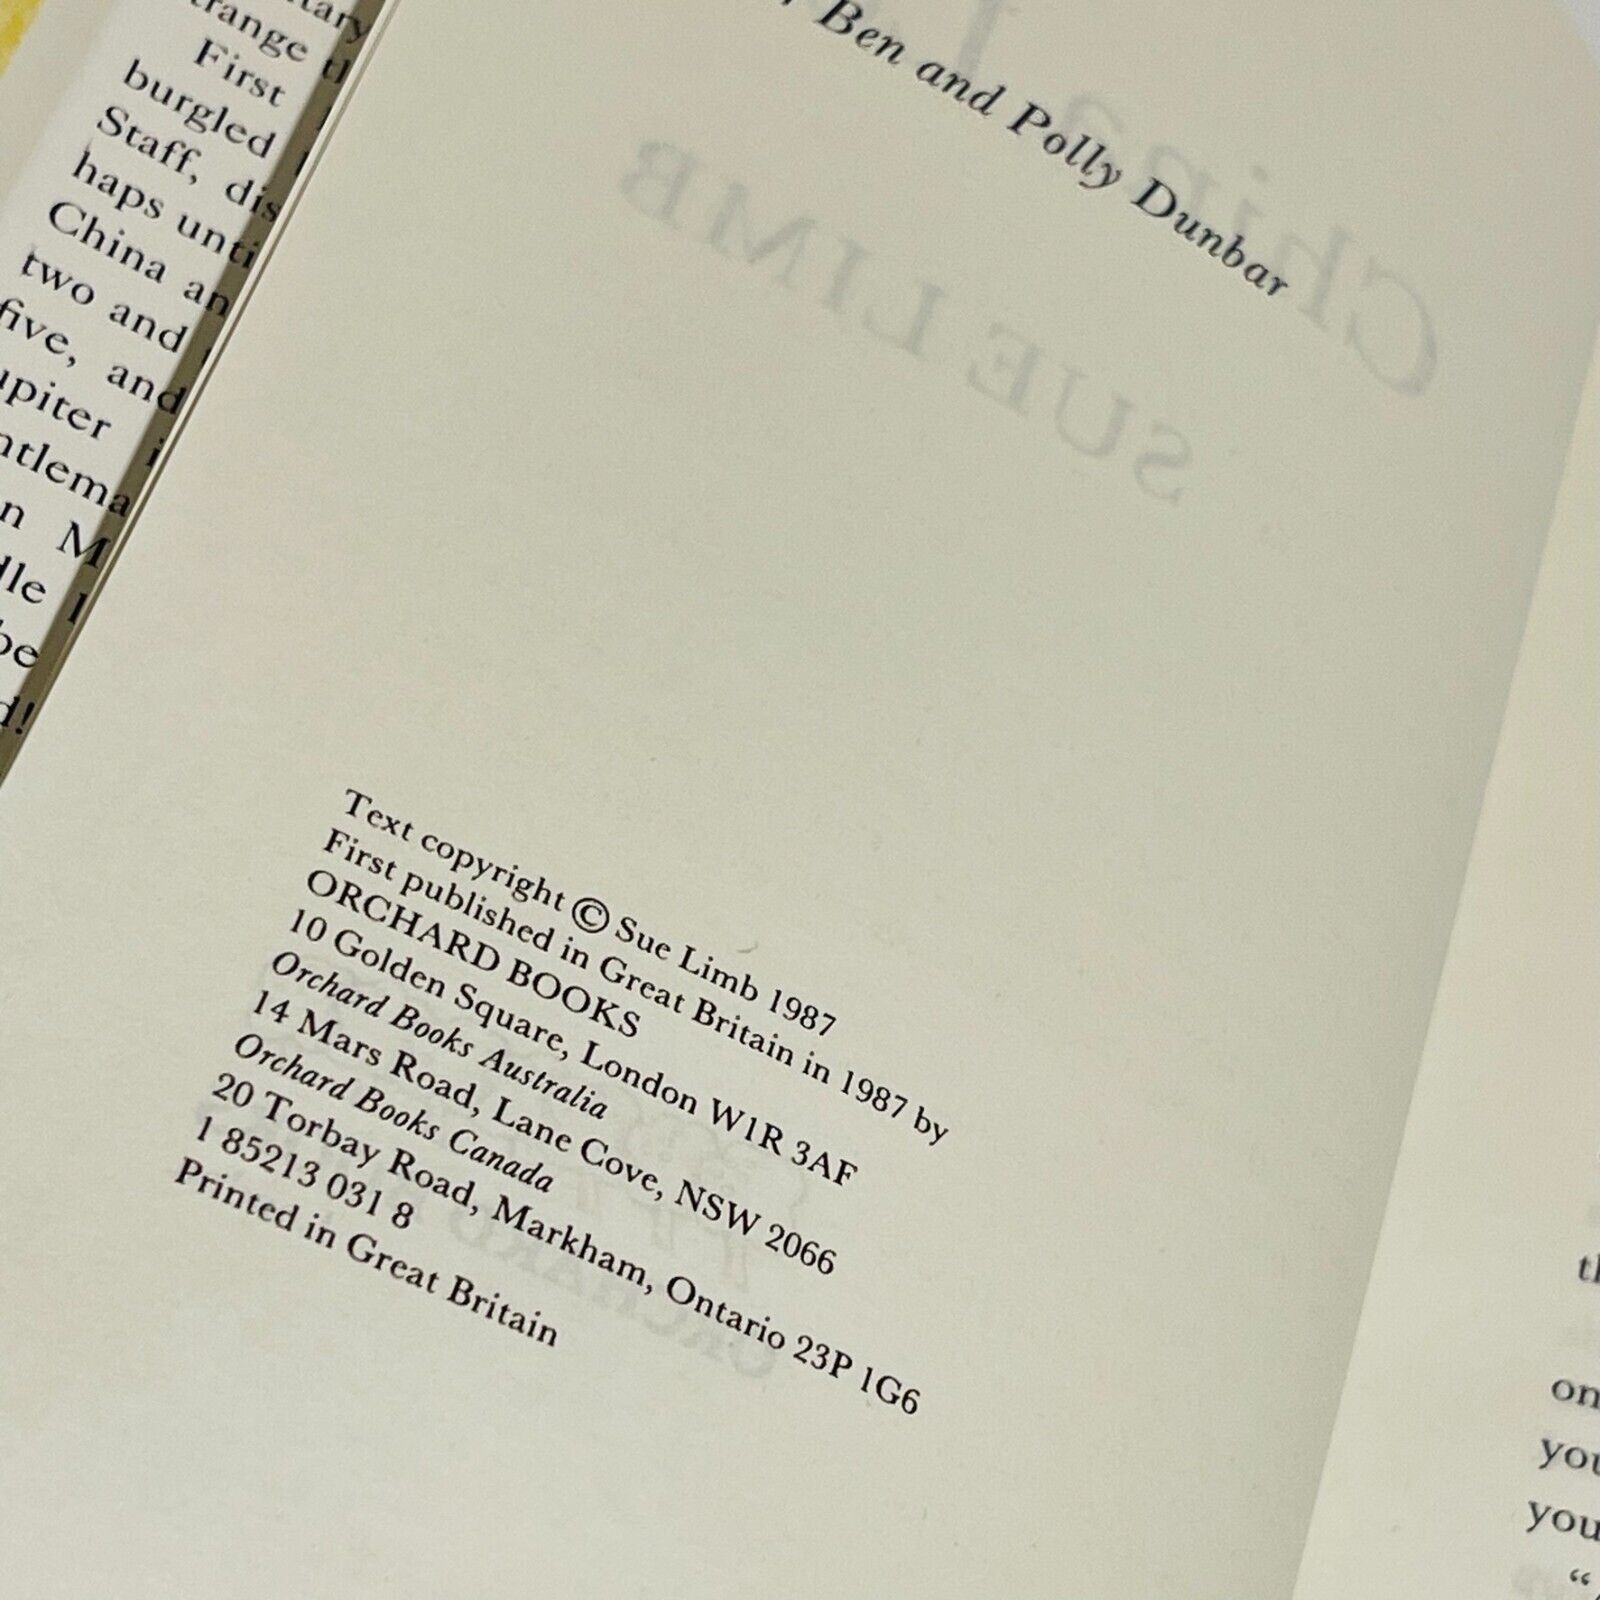 trange th
First
burgled
Staff, dis
haps unti
China an
two and
five, and
upiter i
ntlema
n M
lle l
be
d!
Ben and Polly Dunbar
China
SUE LIMB
Text copyright © Sue Limb 1987
First published in Great Britain in 1987 by
ORCHARD BOOKS
10 Golden Square, London W1R 3AF
Orchard Books Australia
14 Mars Road, Lane Cove, NSW 2066
Orchard Books Canada
20 Torbay Road, Markham, Ontario 23P 1G6
1 85213 031 8
Printed in Great Britain
th
on
you
you